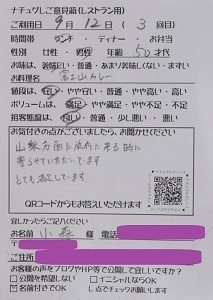 ナチュグレご意見箱(レストラン用)
ご利用日 9月12日(3回目)
時間帯 ランチ・ディナー・お弁当
性別 女性・男性 年齢 50才代
お味は、美味しい・普通・あまり美味しくない・まずい
お料理名 富士山カレー
値段は、安い・やや安い・普通・やや高い・高い
ボリュームは、満足・やや満足・普通・やや不満・不満
接客態度は、良い・普通・少し悪い・悪い
お気付きの点がございましたら、お聞かせください
山梨方面に遊びに来る時に
寄らせていただいてます
とても満足しています
QRコードからもお答えいただけます
宜しかったらご記入ください
お名前 小森 様 電話
〒
ご住所
お客様の声をブログやHP等で公開して宜しいですか?
公開を希望しない イニシャルならOK
名前付でOK しるし点でチェックお願いします